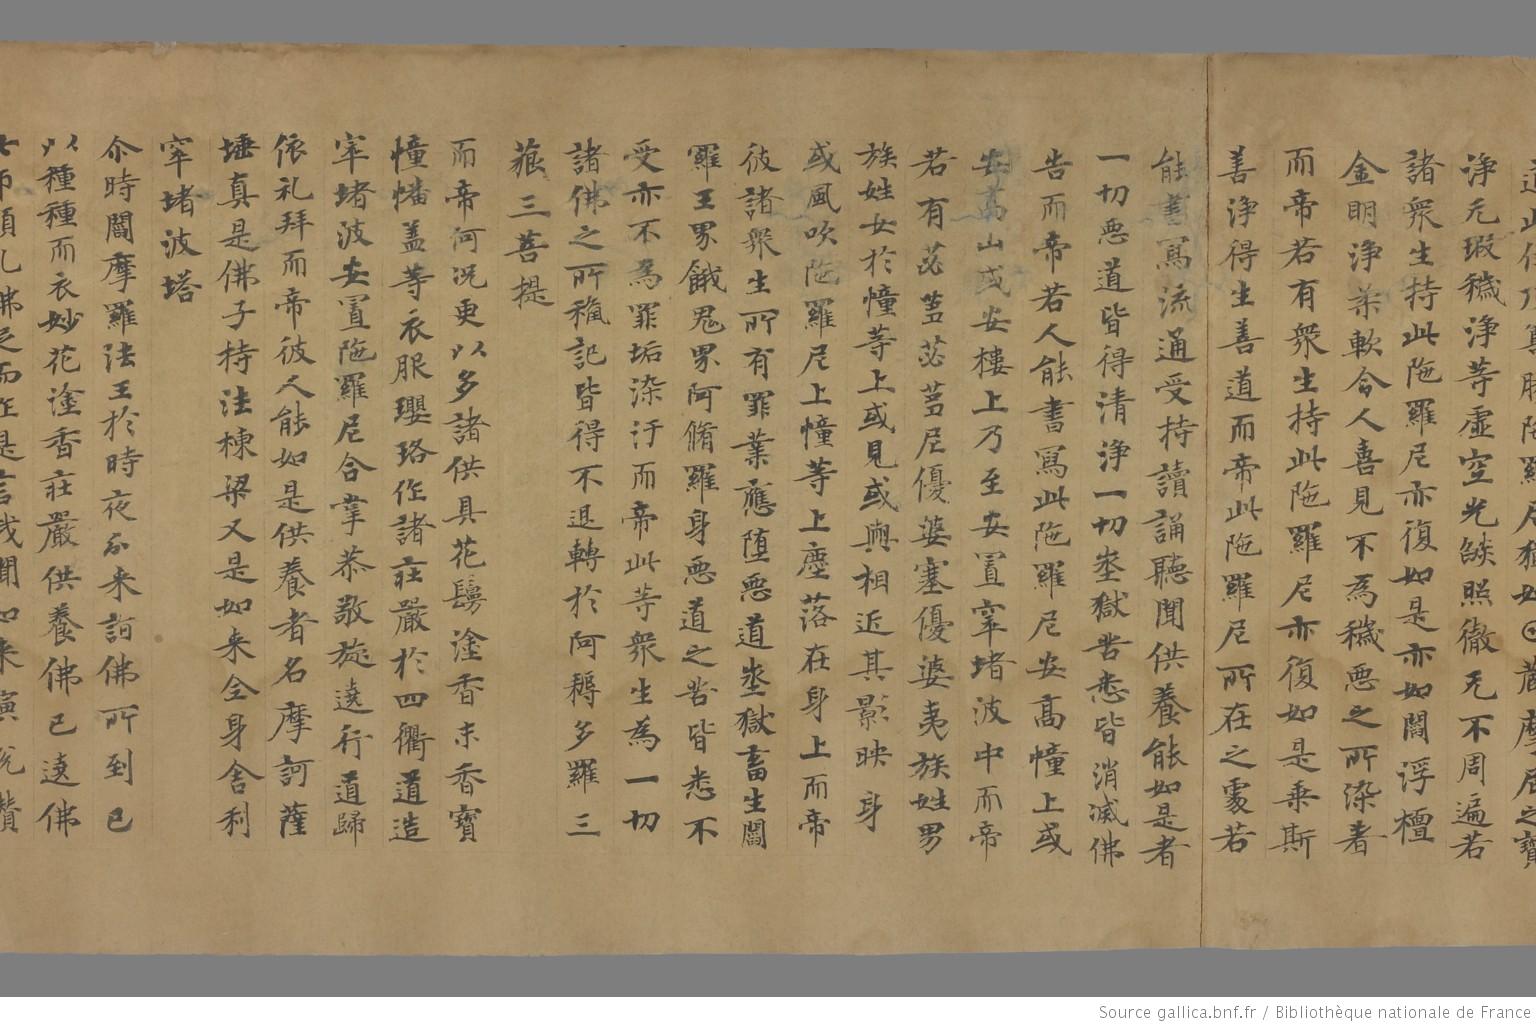 羅尼猶如日藏摩尼之寶
淨无瑕穢淨䓁虛空光𦦨照徹无不周遍若
諸衆生持此陁羅尼亦復如是亦如閻浮檀
金明淨柔軟令人喜見不為穢惡之所染著
而帝若有衆生持此陁羅尼亦復如是乘斯
善淨得生善道而帝此陁羅尼所在之處若
能書寫流通受持讀誦聽聞供養能如是者
一切惡道皆得清淨一切地獄苦𢙣皆消滅佛
告而帝若人能書寫此陁羅尼安高幢上或
安髙山或安樓上乃至安置窣堵波中而帝
若有苾蒭苾蒭尼優婆塞優婆夷族姓男
族姓女於幢䓁上或見或與相近其影映身
或風吹陁羅尼上幢等上塵落在身上而帝
彼諸衆生所有罪業應墮惡道地獄畜生閻
羅王界餓鬼界阿脩羅身惡道之苦皆悉不
受亦不為罪垢染汙而帝此䓁衆生為一切
諸佛之所授記皆得不退轉於阿耨多羅三
藐三菩提
而帝何況更以多諸供具花鬘塗香末香寶
幢幡盖等衣服瓔珞作諸莊嚴於四衢道造
窣堵波安置陁羅尼合掌恭敬旋遶行道歸
依礼拜而帝彼人能如是供養者名摩訶薩
埵真是佛子持法棟梁又是如来全身舍利
窣堵波塔
尒時閻摩羅法王於時夜分来詣佛所到已
以種種而衣妙花塗香莊嚴供養佛已遶佛
七帀頂礼佛足而作是言我聞如来演說讚